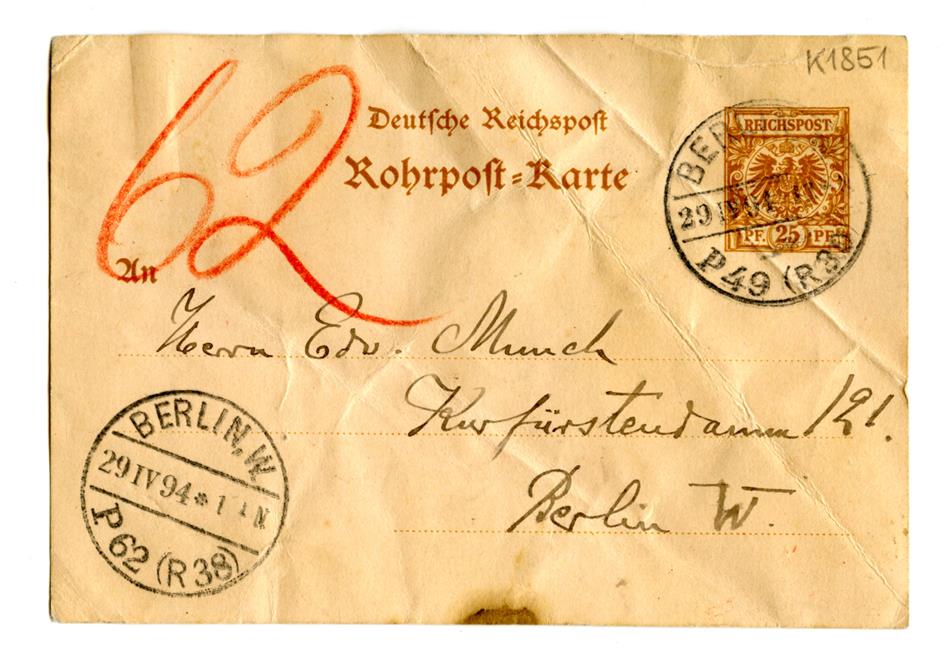 K1851
62
Deutsche Reichspost
Rohrpost=Karte
REICHSPOST
PF. 25 PF.
29 IV 94
P49 (R38)
An
Herrn Edv. Munch
Kurfürstendamm 121.
Berlin W.
BERLIN, W.
29 IV 94 * 1
P62 (R38)